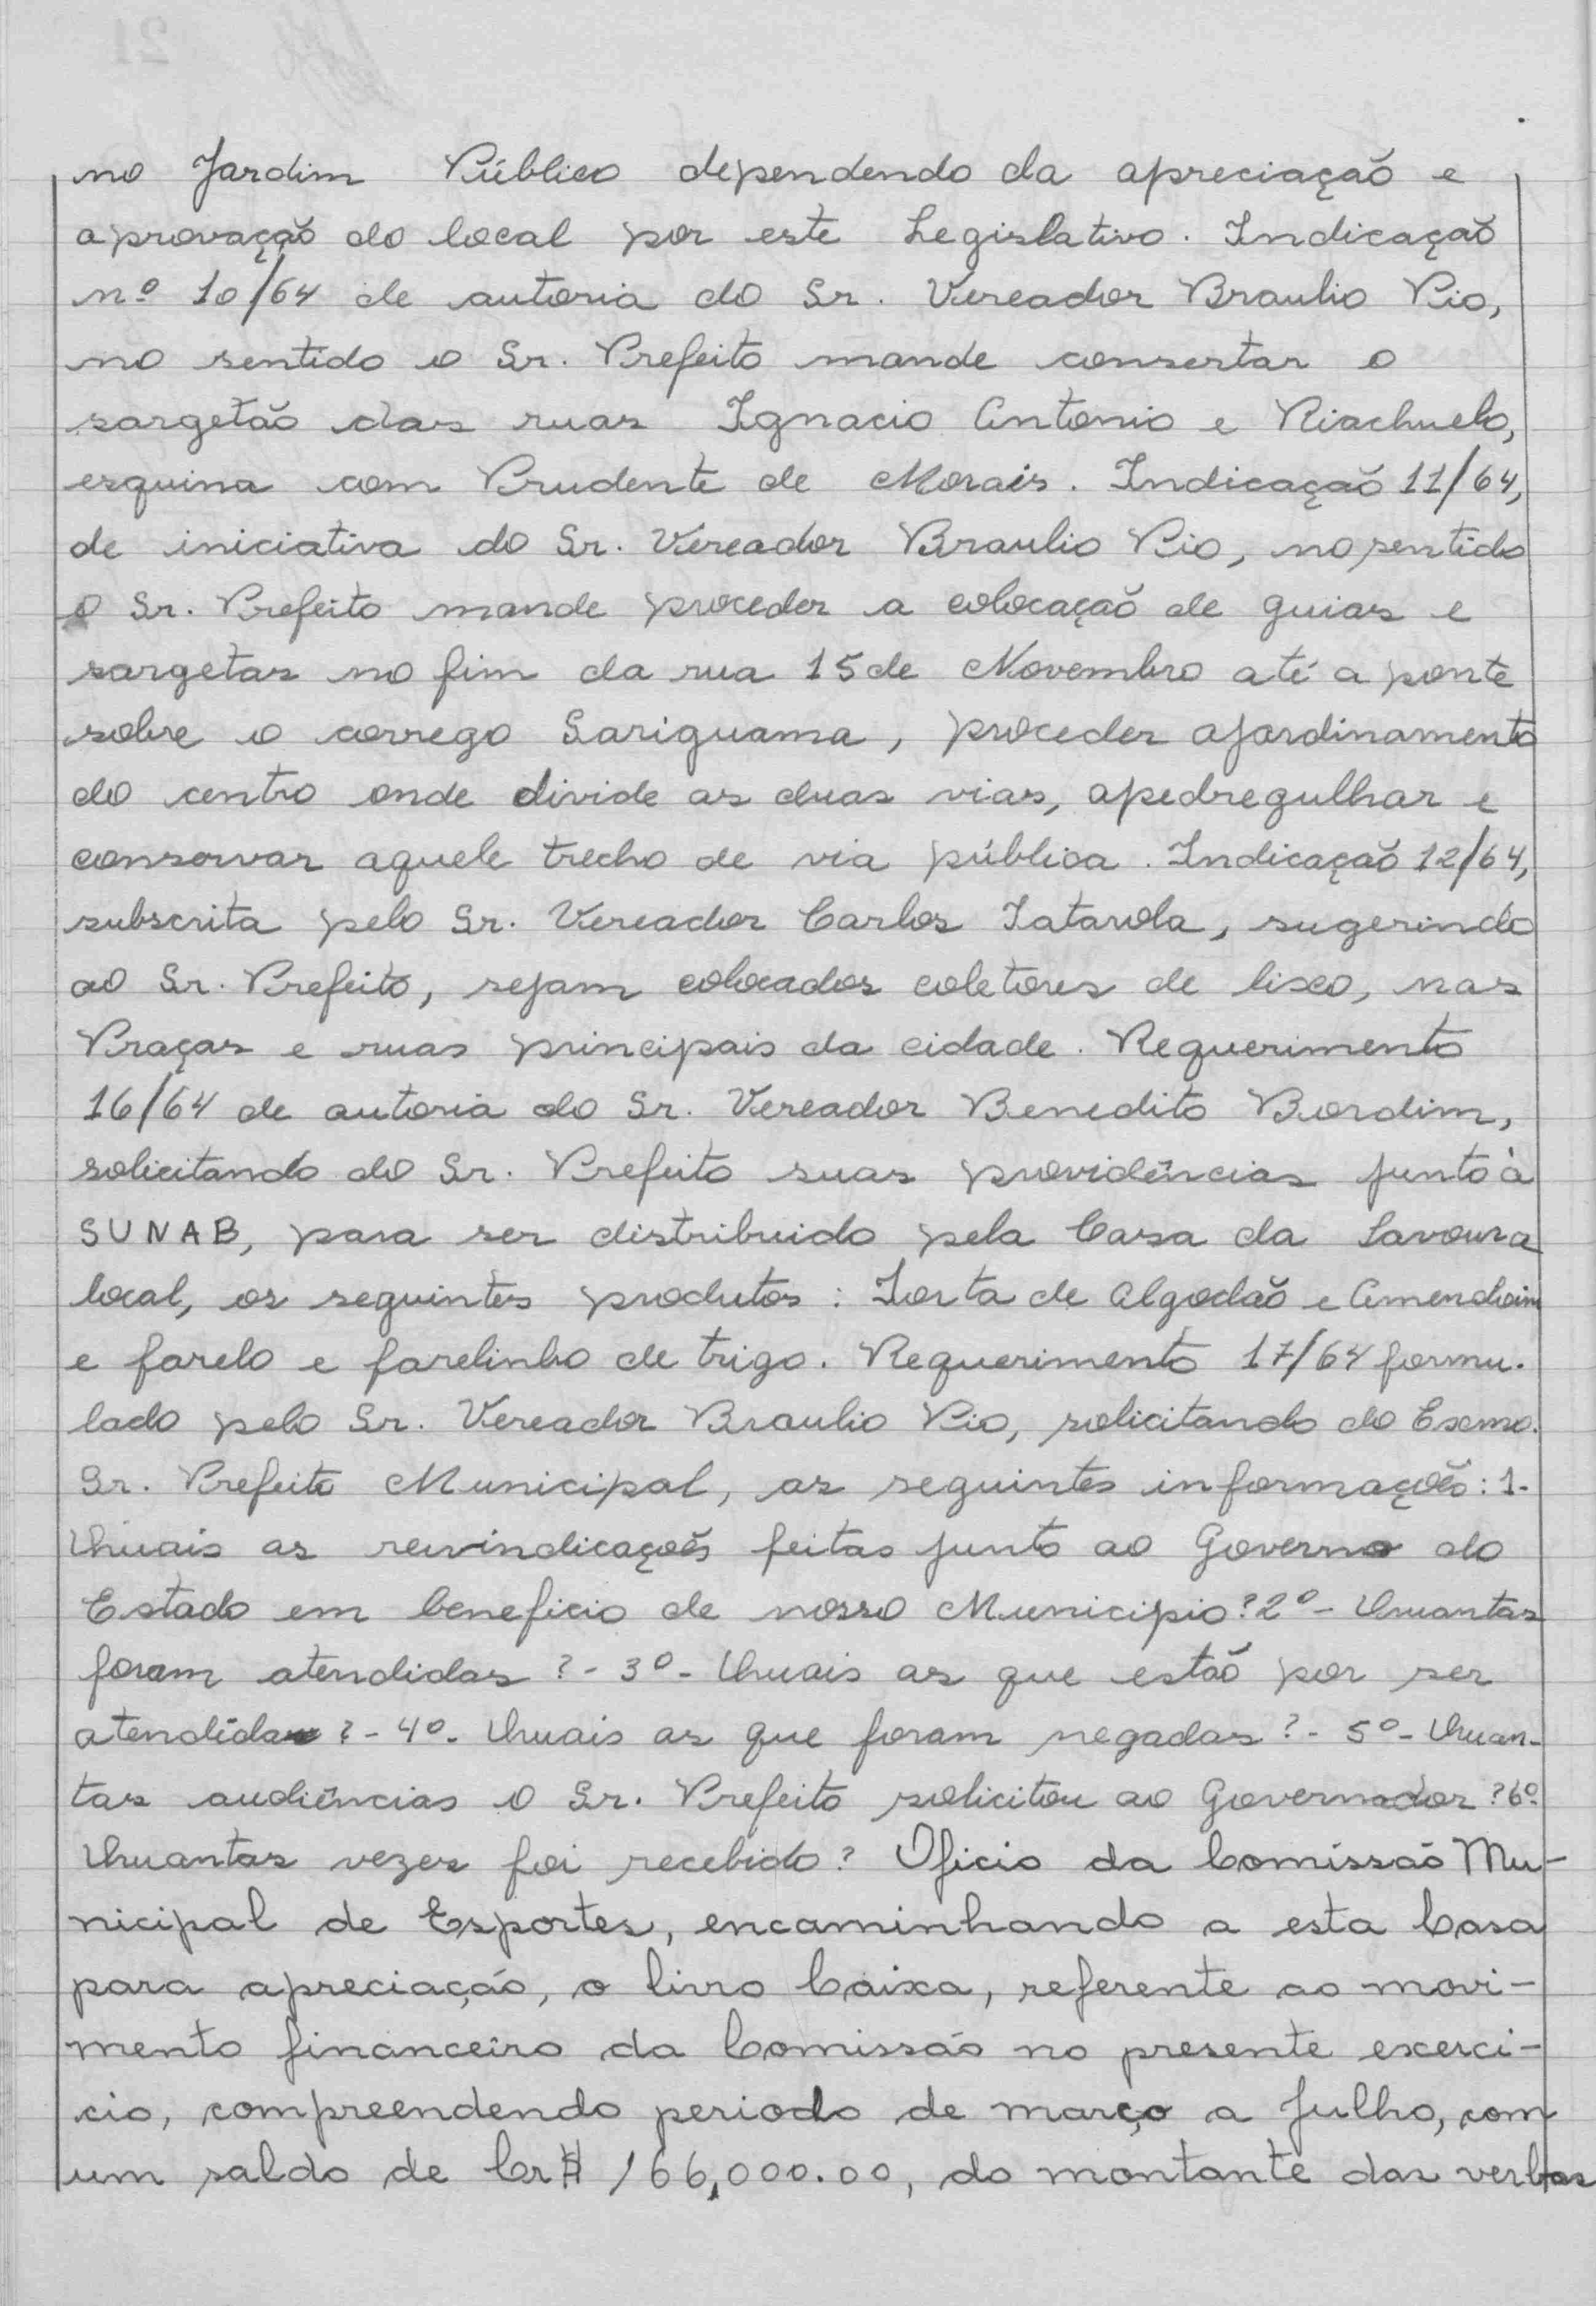 no Jardim Público dependendo da apreciação e
aprovação do local por este Legislativo. Indicação
nº 10/64 de autoria do Sr. Vereador Braulio Pio,
no sentido o Sr. Prefeito mande consertar o
sargetão das ruas Ignacio Antonio e Riachuelo,
esquina com Prudente de Morais. Indicação 11/64,
de iniciativa do Sr. Vereador Braulio Pio, no sentido
o Sr. Prefeito mande proceder a colocação de guias e
sargetas no fim da rua 15 de Novembro até a ponte
sobre o corrego Sariguama, proceder ajardinamento
do centro onde divide as duas vias, apedregulhar e
conservar aquele trecho de via pública. Indicação 12/64,
subscrita pelo Sr. Vereador Carlos Tatarola, sugerindo
ao Sr. Prefeito, sejam colocados coletores de lixo, nas
Praças e ruas principais da cidade. Requerimento
16/64 de autoria do Sr. Vereador Benedito Bordim,
solicitando do Sr. Prefeito suas providências junto à
SUNAB, para ser distribuido pela Casa da Lavoura
local, os seguintes produtos: Torta de Algodão e Amendoim
e farelo e farelinho de trigo. Requerimento 17/64 formu-
lado pelo Sr. Vereador Braulio Pio, solicitando do Exmo.
Sr. Prefeito Municipal, as seguintes informações: 1-
Quais as reivindicações feitas junto ao Governo do
Estado em beneficio de nosso Municipio? 2º - Quantas
foram atendidas? - 3º - Quais as que estão por ser
atendidas? - 4º - Quais as que foram negadas? - 5º - Quan-
tas audiências o Sr. Prefeito solicitou ao Governador? 6º
Quantas vezes foi recebido? Oficio da Comissão Mu-
nicipal de Esportes, encaminhando a esta Casa
para apreciação, o livro Caixa, referente ao movi-
mento financeiro da Comissão no presente exerci-
cio, compreendendo periodo de março a Julho, com
um saldo de Cr$ 166,000.00, do montante das verbas